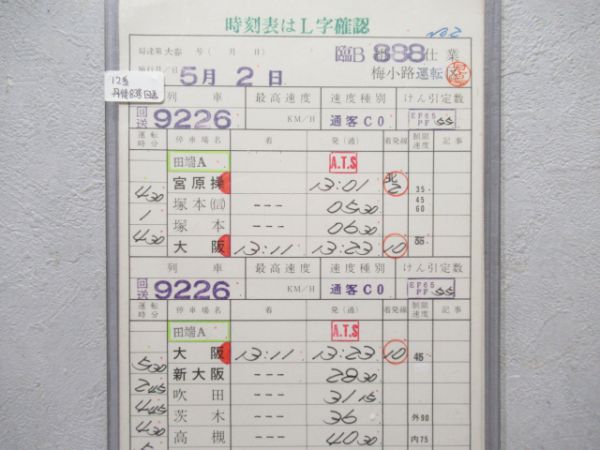 時刻表はL字確認
No.2
局達第大 号( 月 日)
臨B 888 仕業
施行月/日 5月2日 梅小路運転区
12系
列車 最高速度 速度種別 けん引定数
回送 9226 KM/H 通客C0 EF65 PF 55
運転時分 停車場名 着 発(通) 着発線 制限速度 記事
田端A A.T.S
宮原操 13:01 北2 35
4 30
塚本(信) --- 05 30 45 60
1
塚本 --- 06 30
4 30
大阪 13:11 13:23 10
列車 最高速度 速度種別 けん引定数
回送 9226 KM/H 通客C0 EF65 PF 55
運転時分 停車場名 着 発(通) 着発線 制限速度 記事
田端A A.T.S
大阪 13:11 13:23 10 45
5 30
新大阪 --- 28 30
2 45
吹田 --- 31 15
4 45
茨木 --- 36 外90
4 30
高槻 --- 40 30 内75